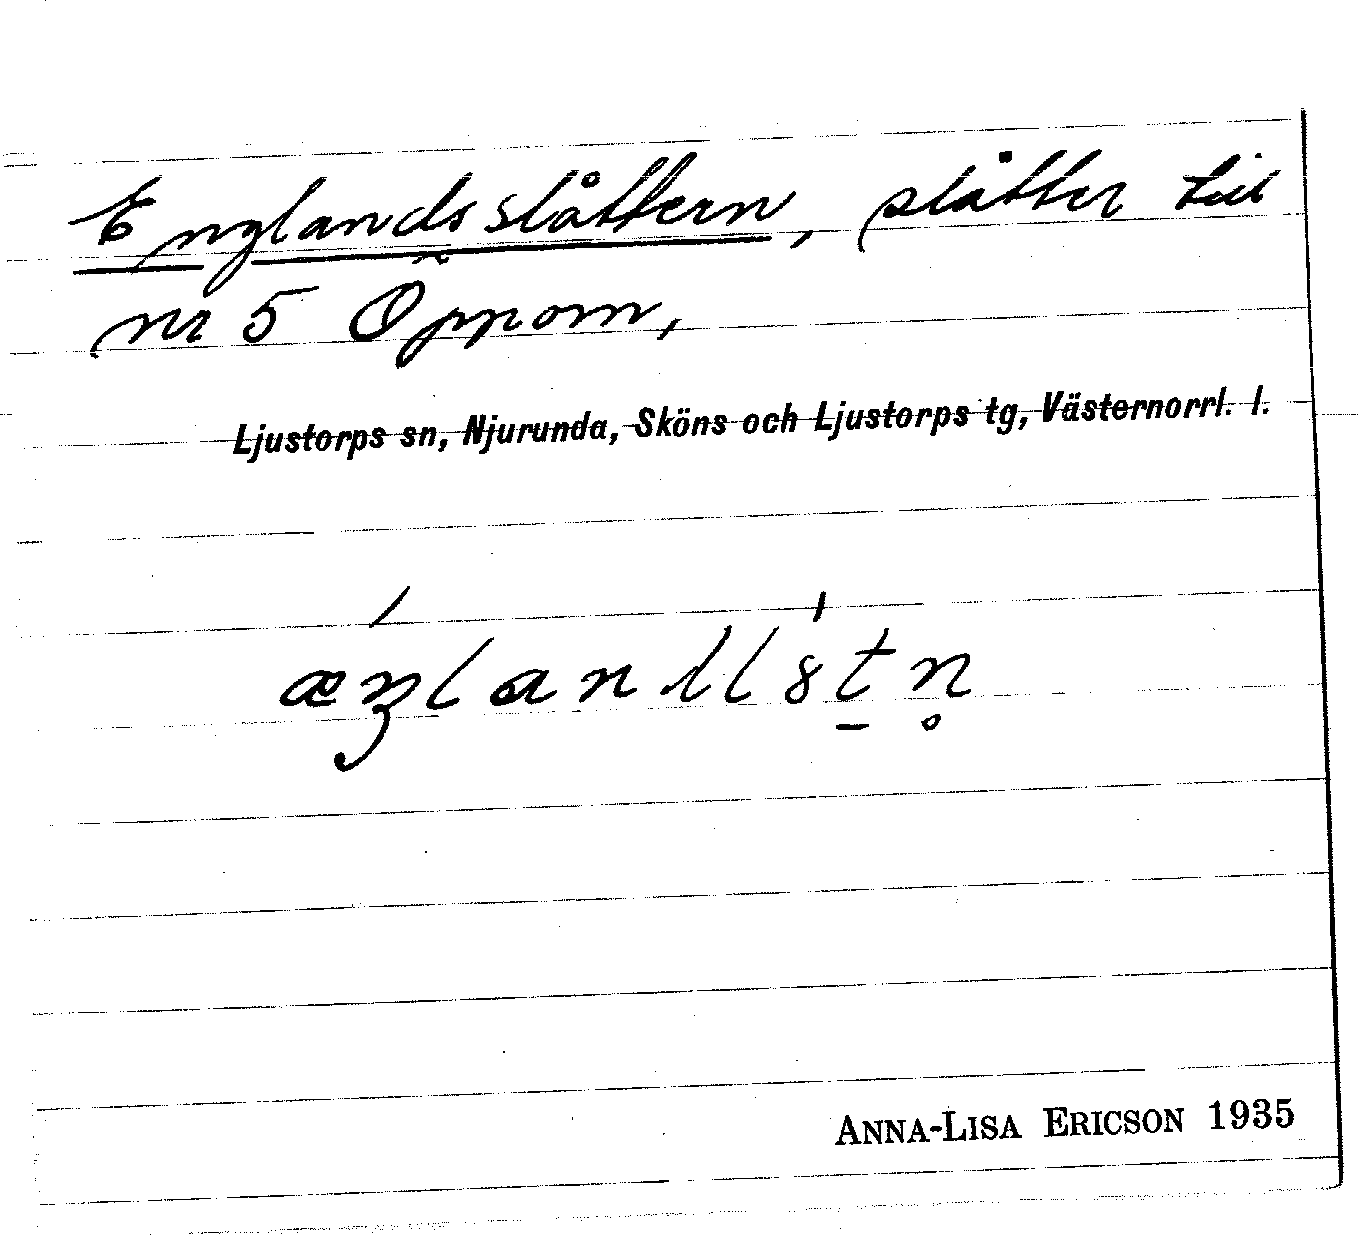 Englandsslåttern, slåtter till
nr 5 Öppom,
Ljustorps sn, Njurunda, Sköns och Ljustorps tg, Västernorrl. l.
ANNA-LISA ERICSON 1935